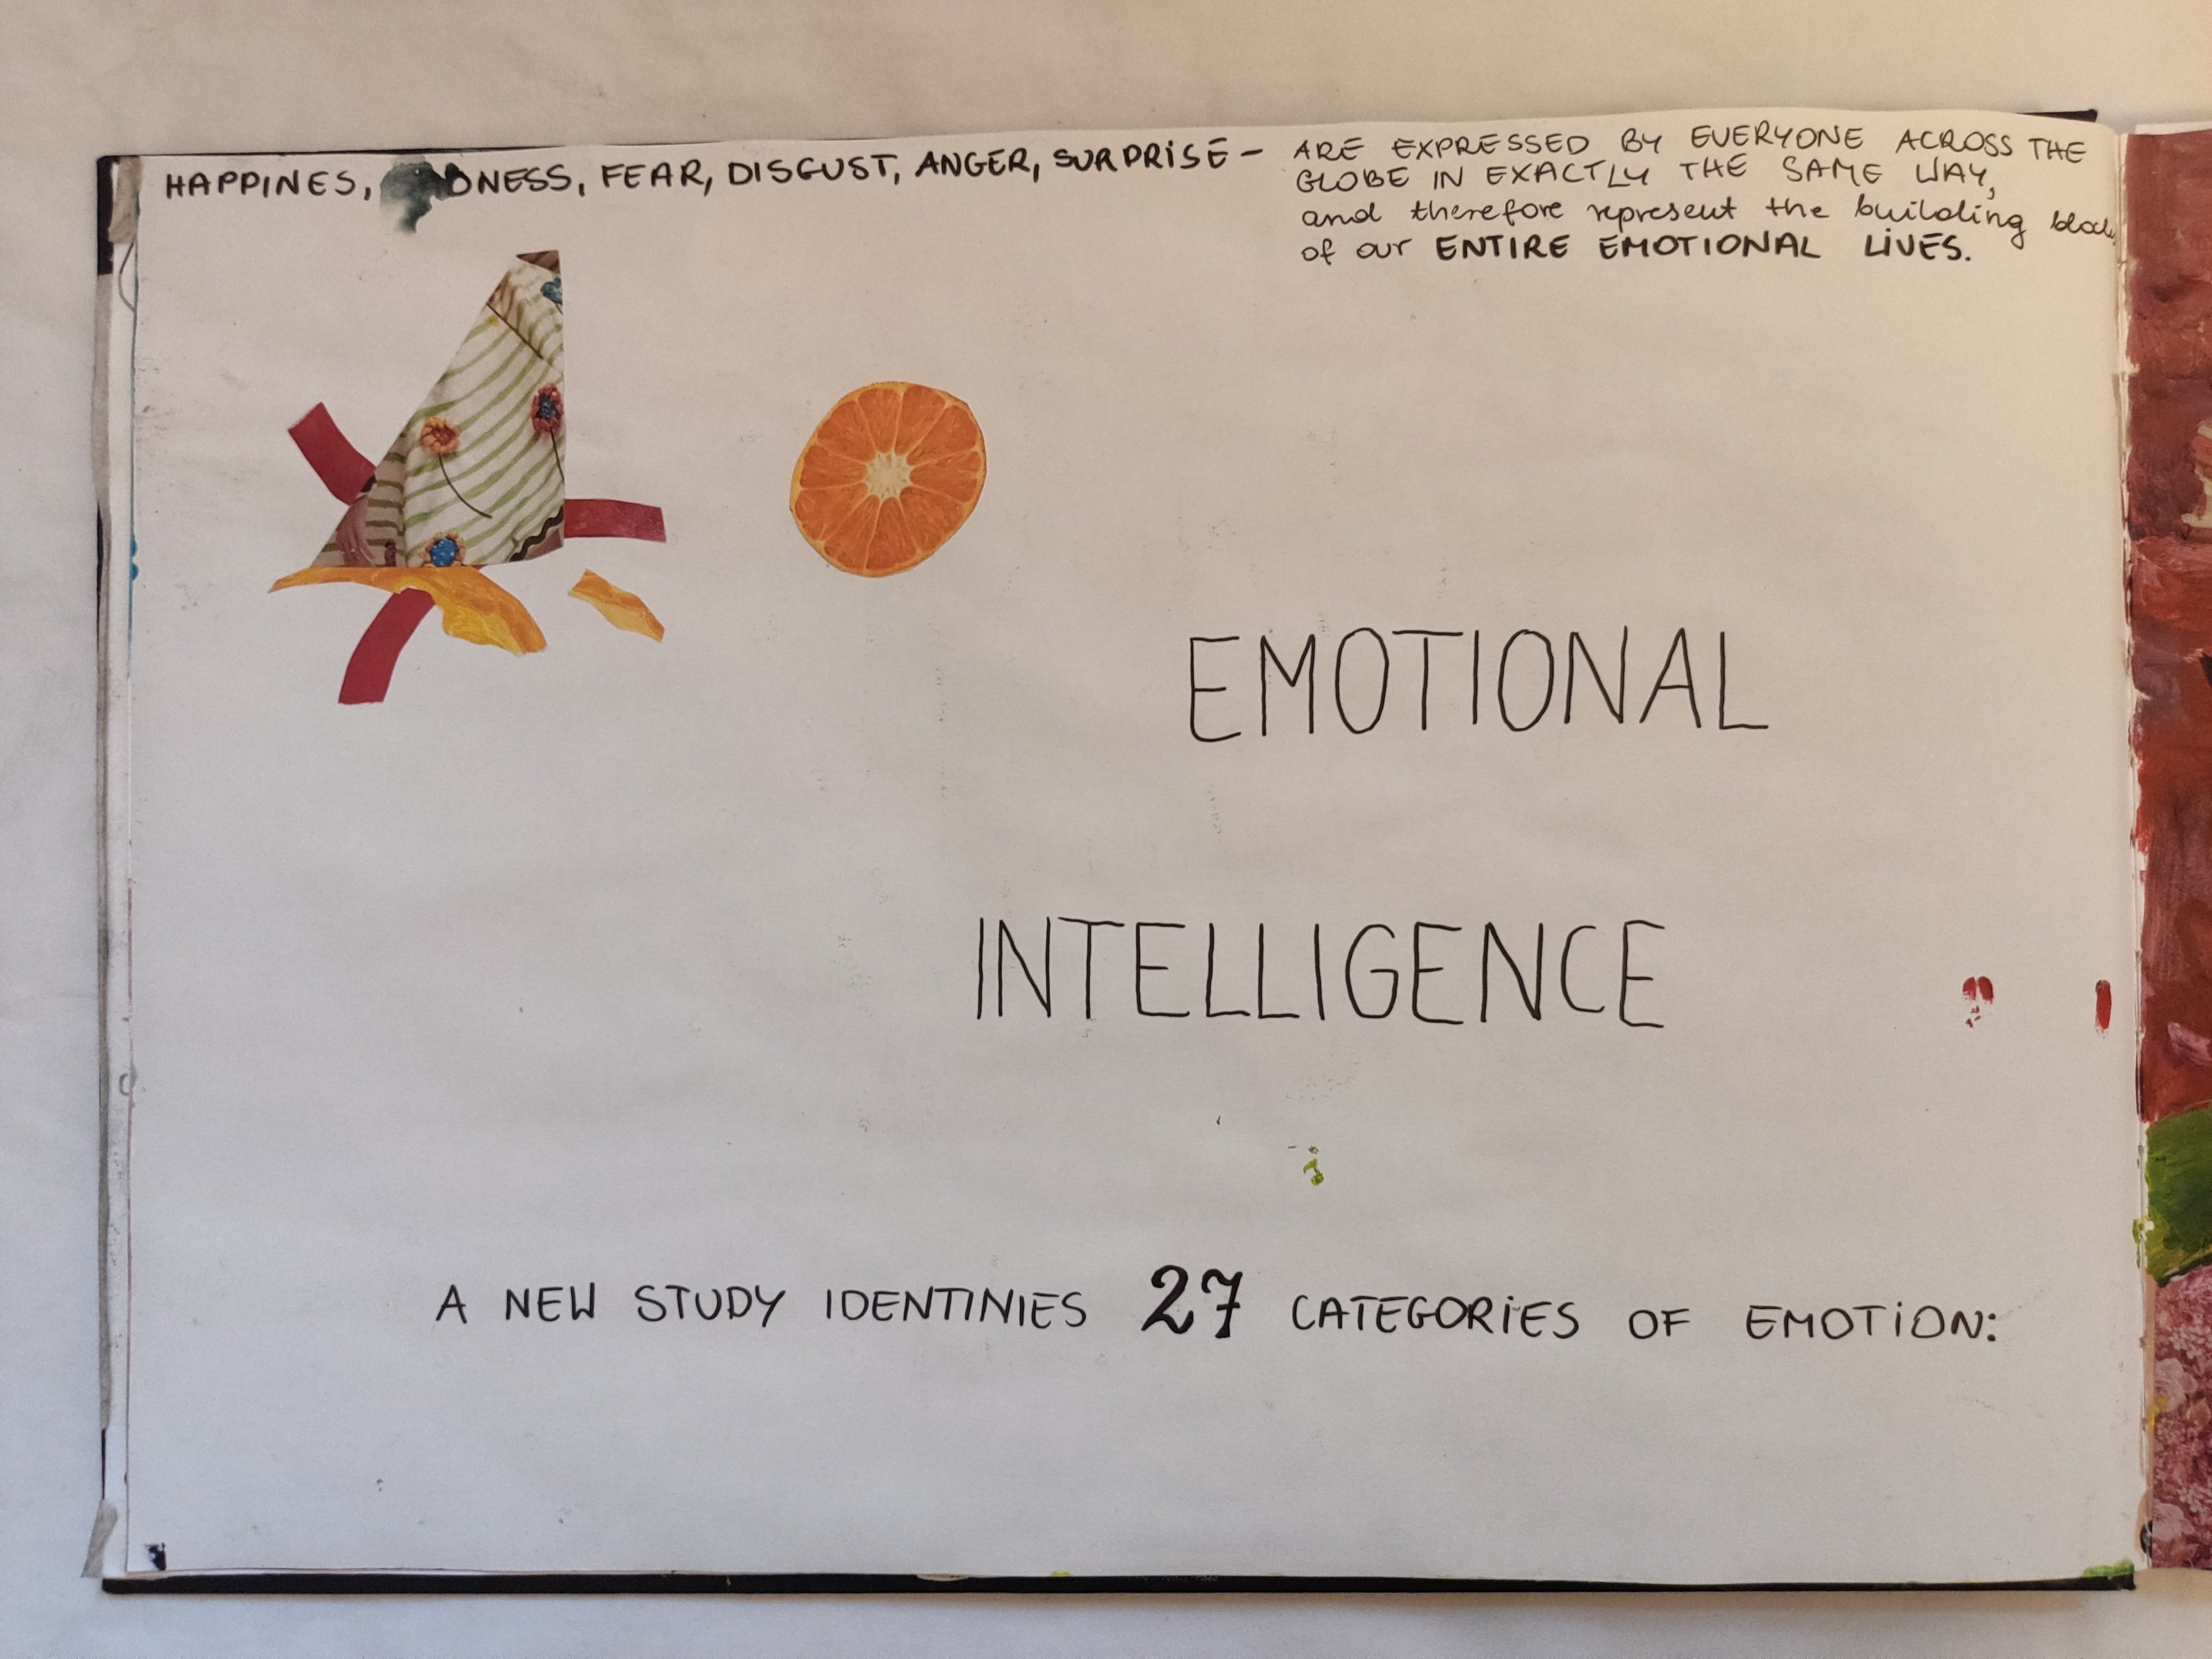 HAPPINES, DNESS, FEAR, DISGUST, ANGER, SURPRISE -
ARE EXPRESSED BY EVERYONE ACROSS THE
GLOBE IN EXACTLY THE SAME WAY,
and therefore represent the building
of our ENTIRE EMOTIONAL LIVES.
EMOTIONAL
INTELLIGENCE
A NEW STUDY IDENTINIES 27 CATEGORIES OF EMOTION: